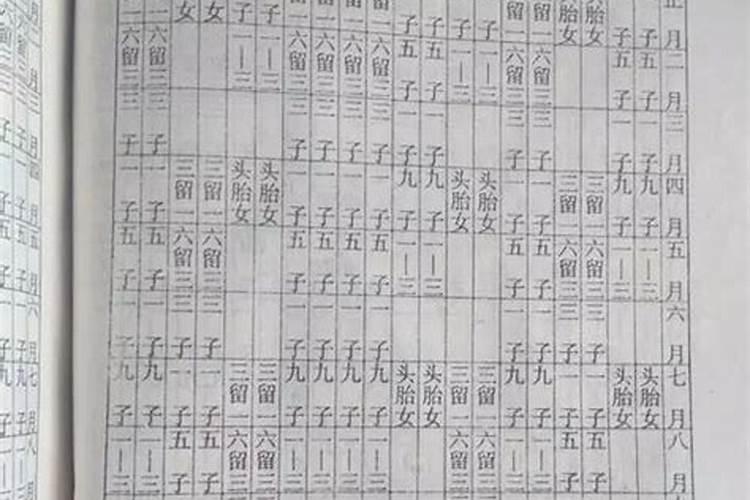 月二月三月四月五月六月七月八月
子五子一子九子一—三头胎女
子五子一子九子一—三头胎女
胎女三留一六留三三子一子五子
胎女三留一六留三三子一子五子
留一六留三三子一子五子一子九子一—三
留一六留三三子一子五子一子九子一—三
子一—三头胎女三留一六留三
子一—三头胎女三留一六留三
子五子一子九子一—三头胎女
子五子一子九子一—三头胎女
一六留三三子一子五子一子九子一—三
一六留三三子一子五子一子九子一—三
一六留三三子一子五子一子九子一—三
一六留三三子一子五子一子九子一—三
子一—三头胎女三留一六留三
子一—三头胎女三留一六留三
女三留一六留三三子一子五子
女三留一六留三三子一子五子
一六留三三子一子五子一子九子一—三
一六留三三子一子五子一子九子一—三